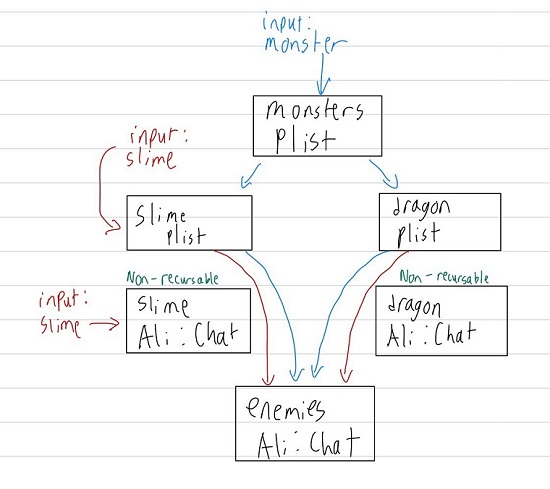 input:
monster
monsters
plist
input:
slime
slime
plist
dragon
plist
Non-recursable
Non-recursable
input:
slime
slime
Ali:Chat
dragon
Ali:Chat
enemies
Ali:Chat